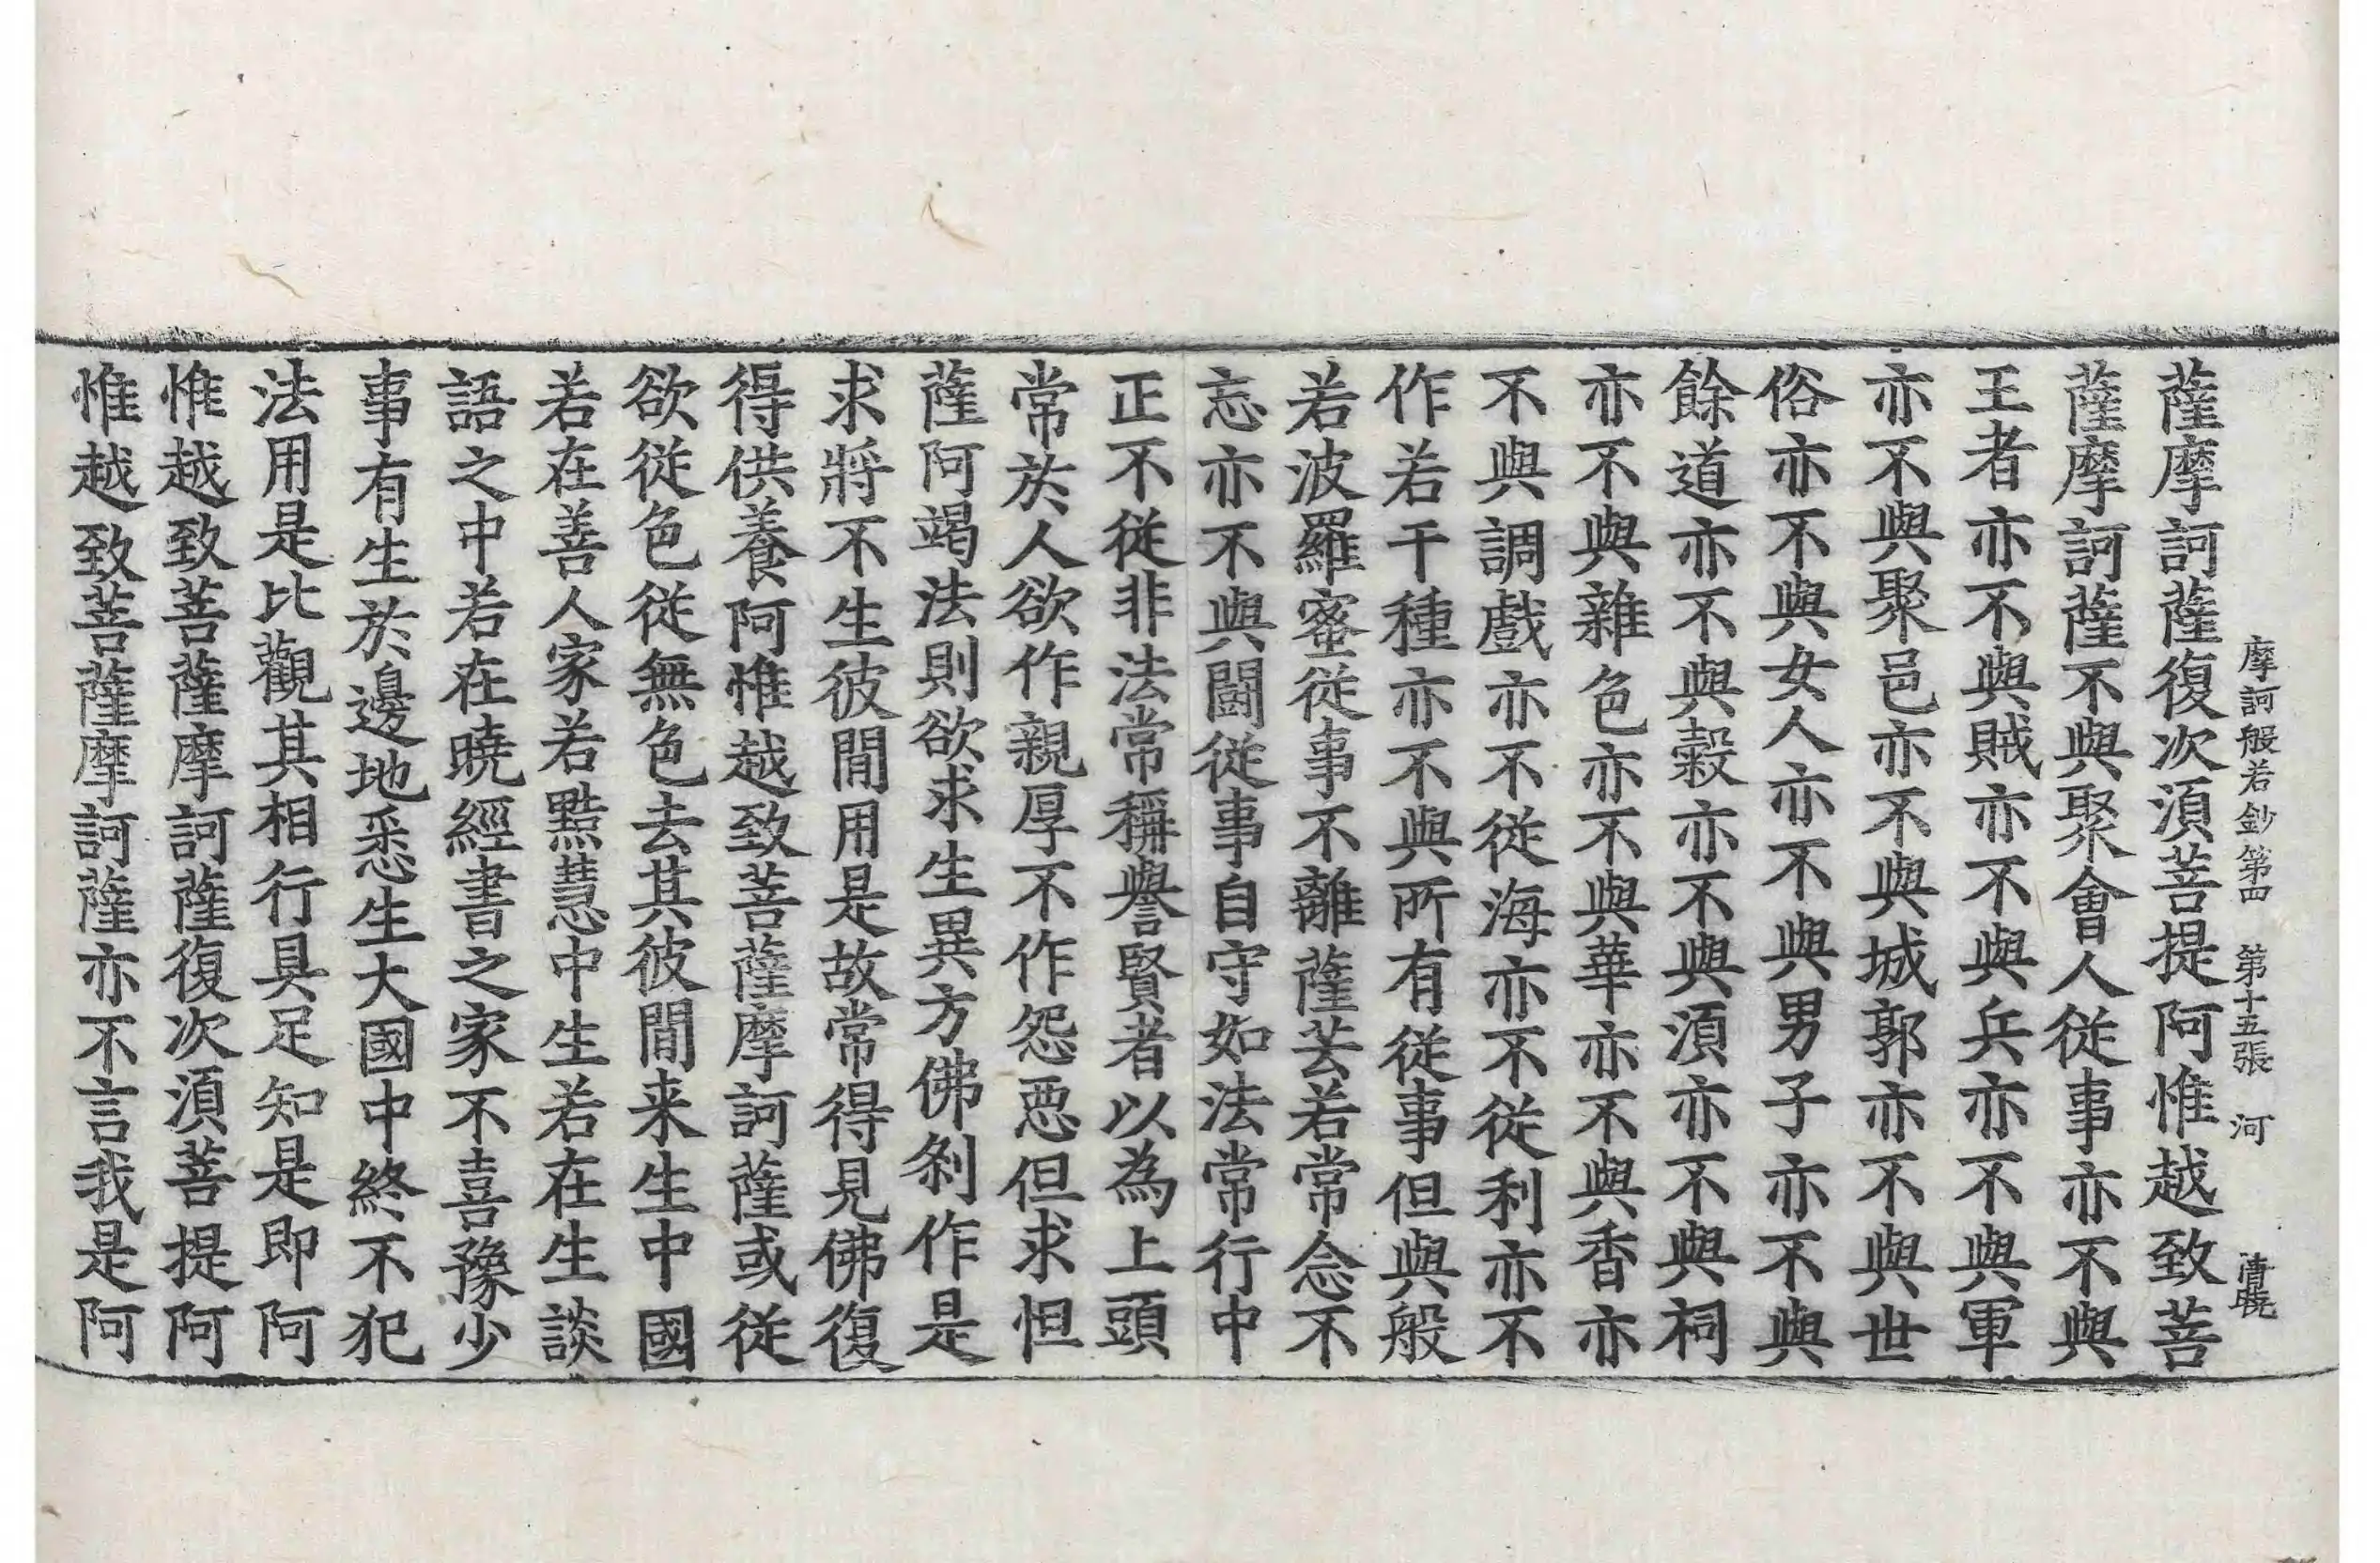 摩訶般若鈔第四 第十五張 河 清曉
薩摩訶薩復次須菩提阿惟越致菩
薩摩訶薩不與聚會人從事亦不與
王者亦不與賊亦不與兵亦不與軍
亦不與聚邑亦不與城郭亦不與世
俗亦不與女人亦不與男子亦不與
餘道亦不與穀亦不與湏亦不與祠
亦不與雜色亦不與華亦不與香亦
不與調戲亦不從海亦不從利亦不
作若干種亦不與所有從事但與般
若波羅蜜從事不離薩芸若常念不
忘亦不與鬪從事自守如法常行中
正不從非法常稱譽賢者以為上頭
常於人欲作親厚不作怨惡但求怛
薩阿竭法則欲求生異方佛剎作是
求將不生彼閒用是故常得見佛復
得供養阿惟越致菩薩摩訶薩或從
欲從色從無色去其彼閒来生中國
若在善人家若黠慧中生若在生談
語之中若在曉經書之家不喜豫少
事有生於邊地悉生大國中終不犯
法用是比觀其相行具足知是即阿
惟越致菩薩摩訶薩復次湏菩提阿
惟越致菩薩摩訶薩亦不言我是阿